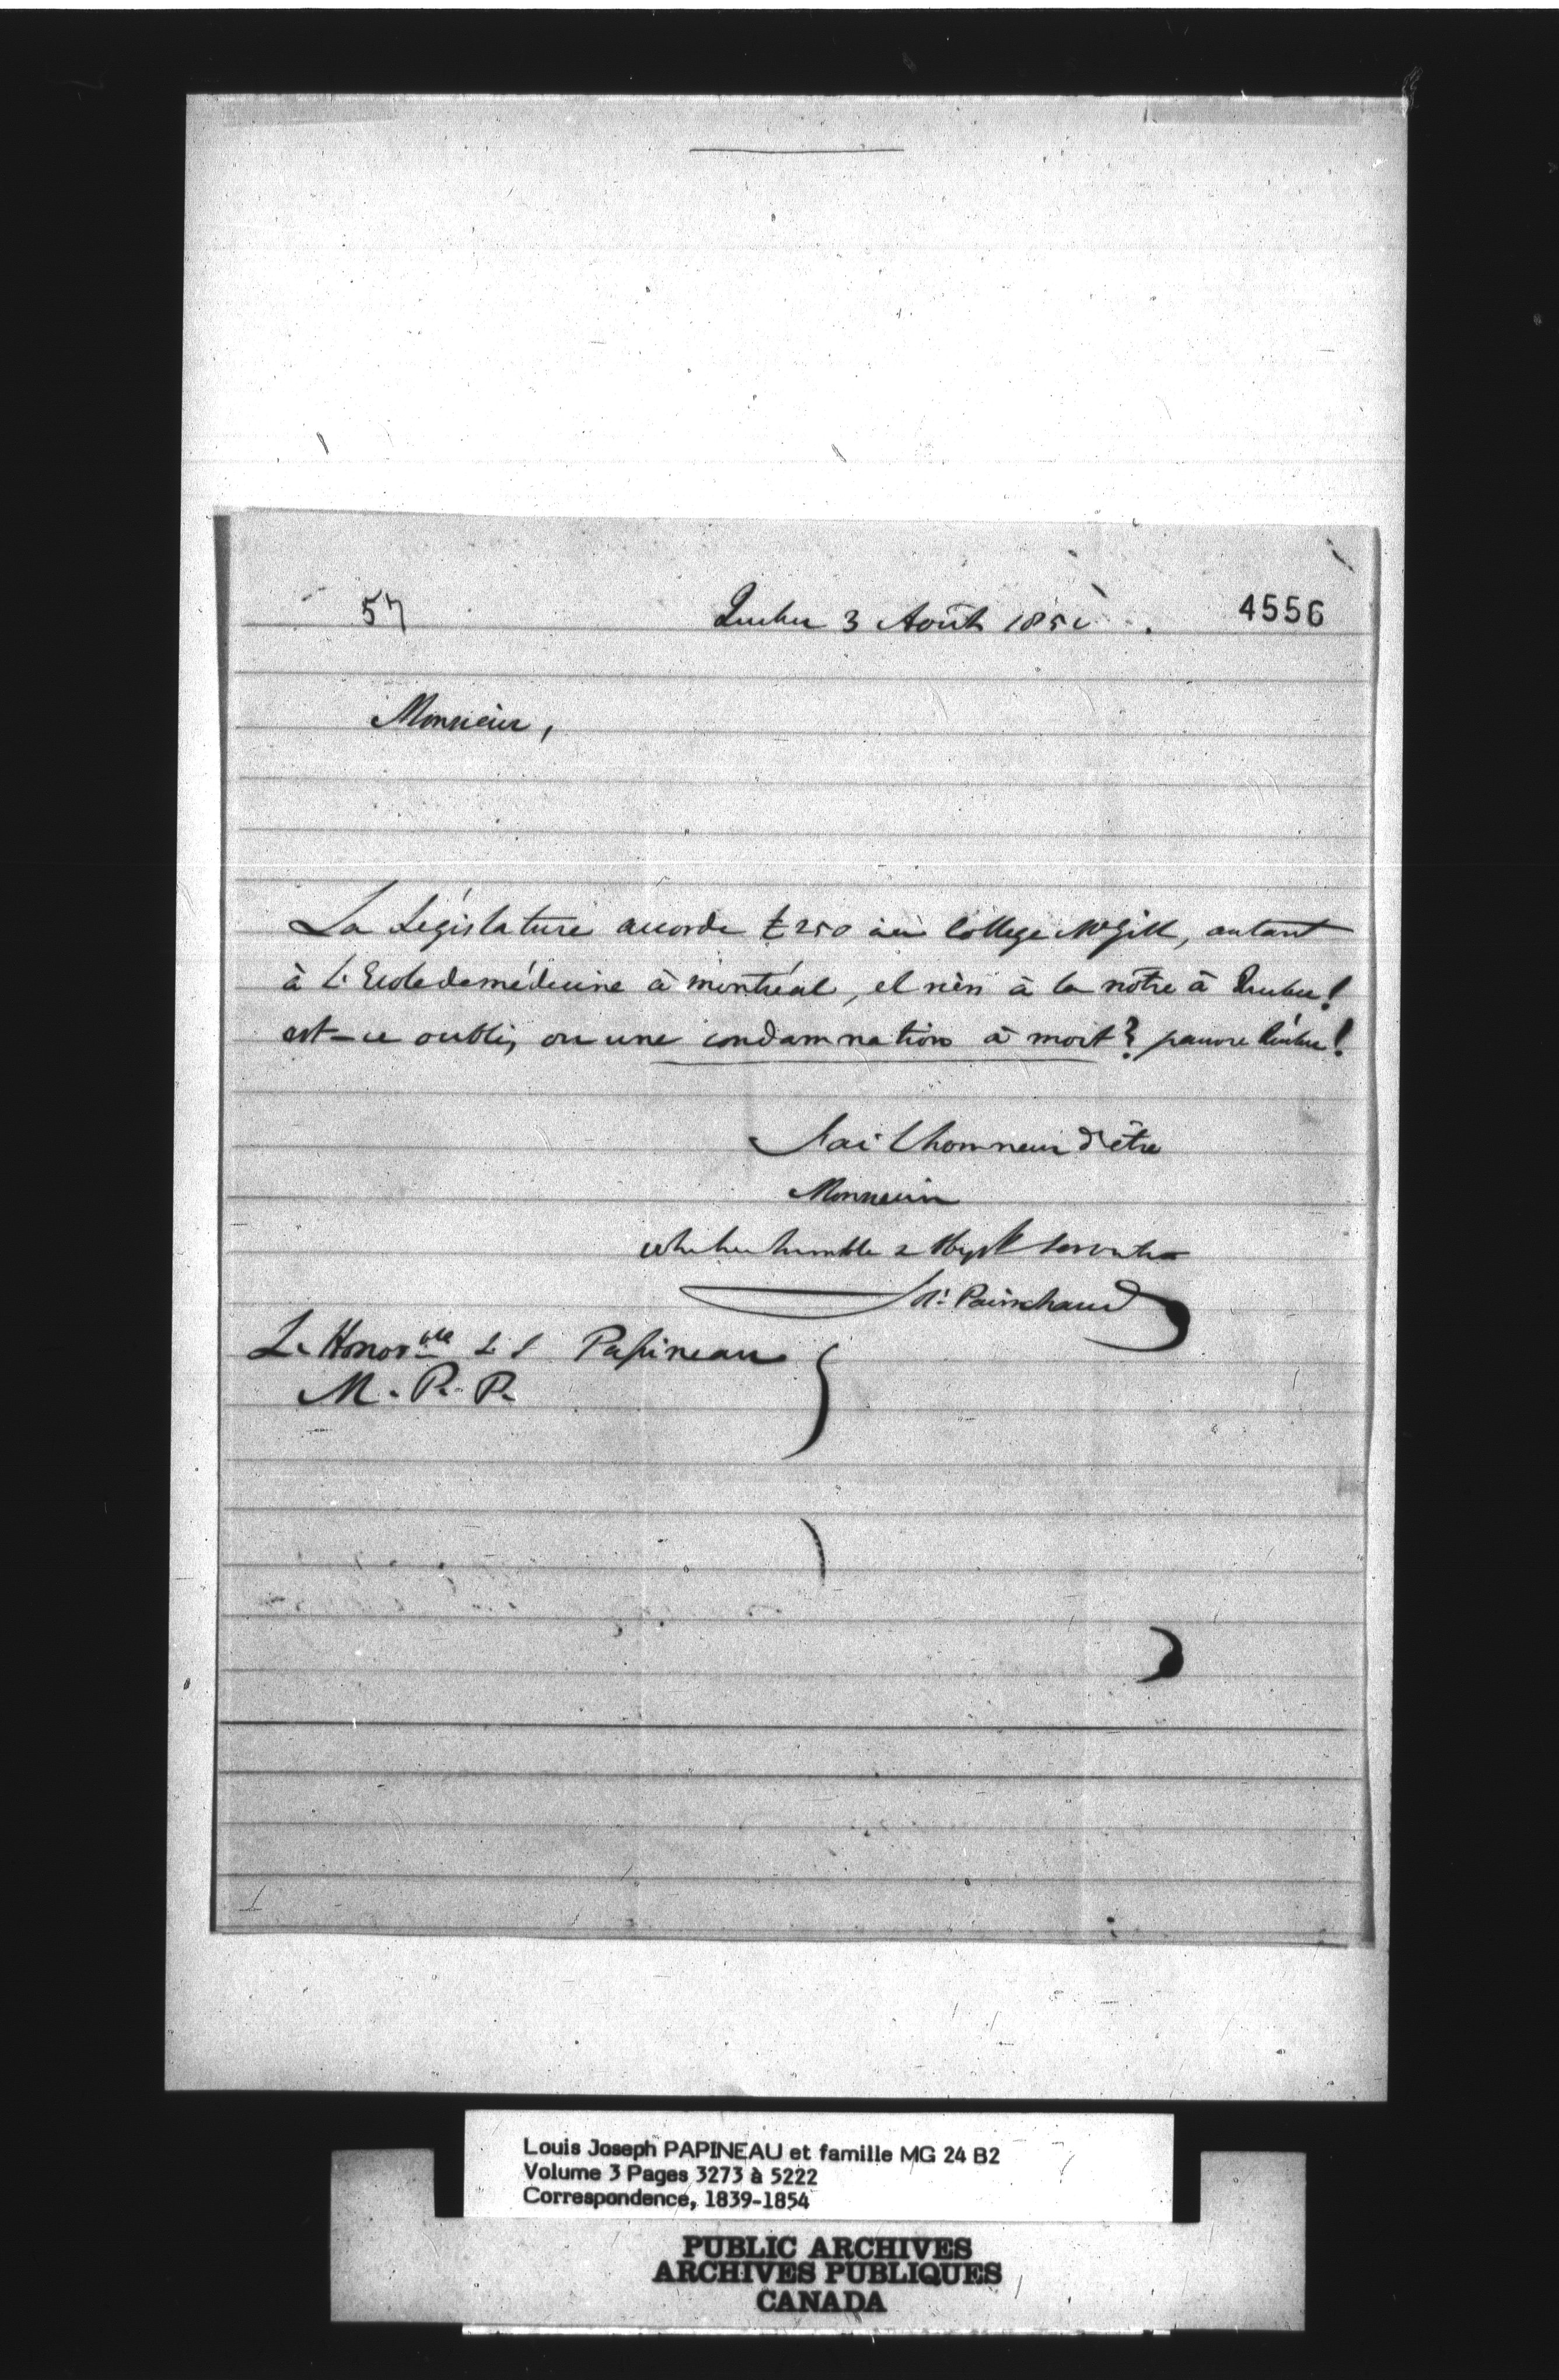 57 Quebec 3 Août 185 4556
Monsieur,
La Législature accorde £250 au College McGill, autant
à l'Ecole de médecine à montréal, et rien à la nôtre à Quebec!
est-ce oubli, ou une condamnation à mort? pauvre Québec!
J'ai l'honneur d'être
Monsieur
votre humble & Obgst servant
Painchaud
L'Honorble L J Papineau
M. P. P.
Louis Joseph PAPINEAU et famille MG 24 B2
Volume 3 Pages 3273 à 5222
Correspondence, 1839-1854
PUBLIC ARCHIVES
ARCHIVES PUBLIQUES
CANADA